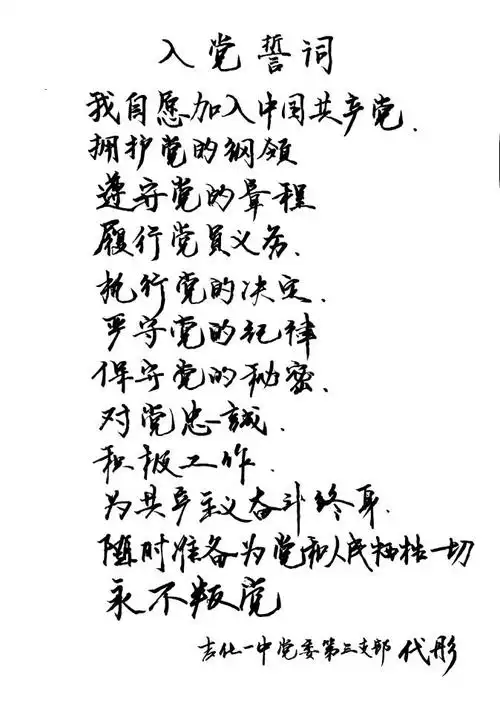 入党誓词
我自愿加入中国共产党.
拥护党的纲领
遵守党的章程
履行党员义务.
执行党的决定.
严守党的纪律
保守党的秘密.
对党忠誠.
积极工作.
为共产主义奋斗终身.
随时准备为党和人民牺牲一切
永不叛党
吉化一中党委第三支部 代彤